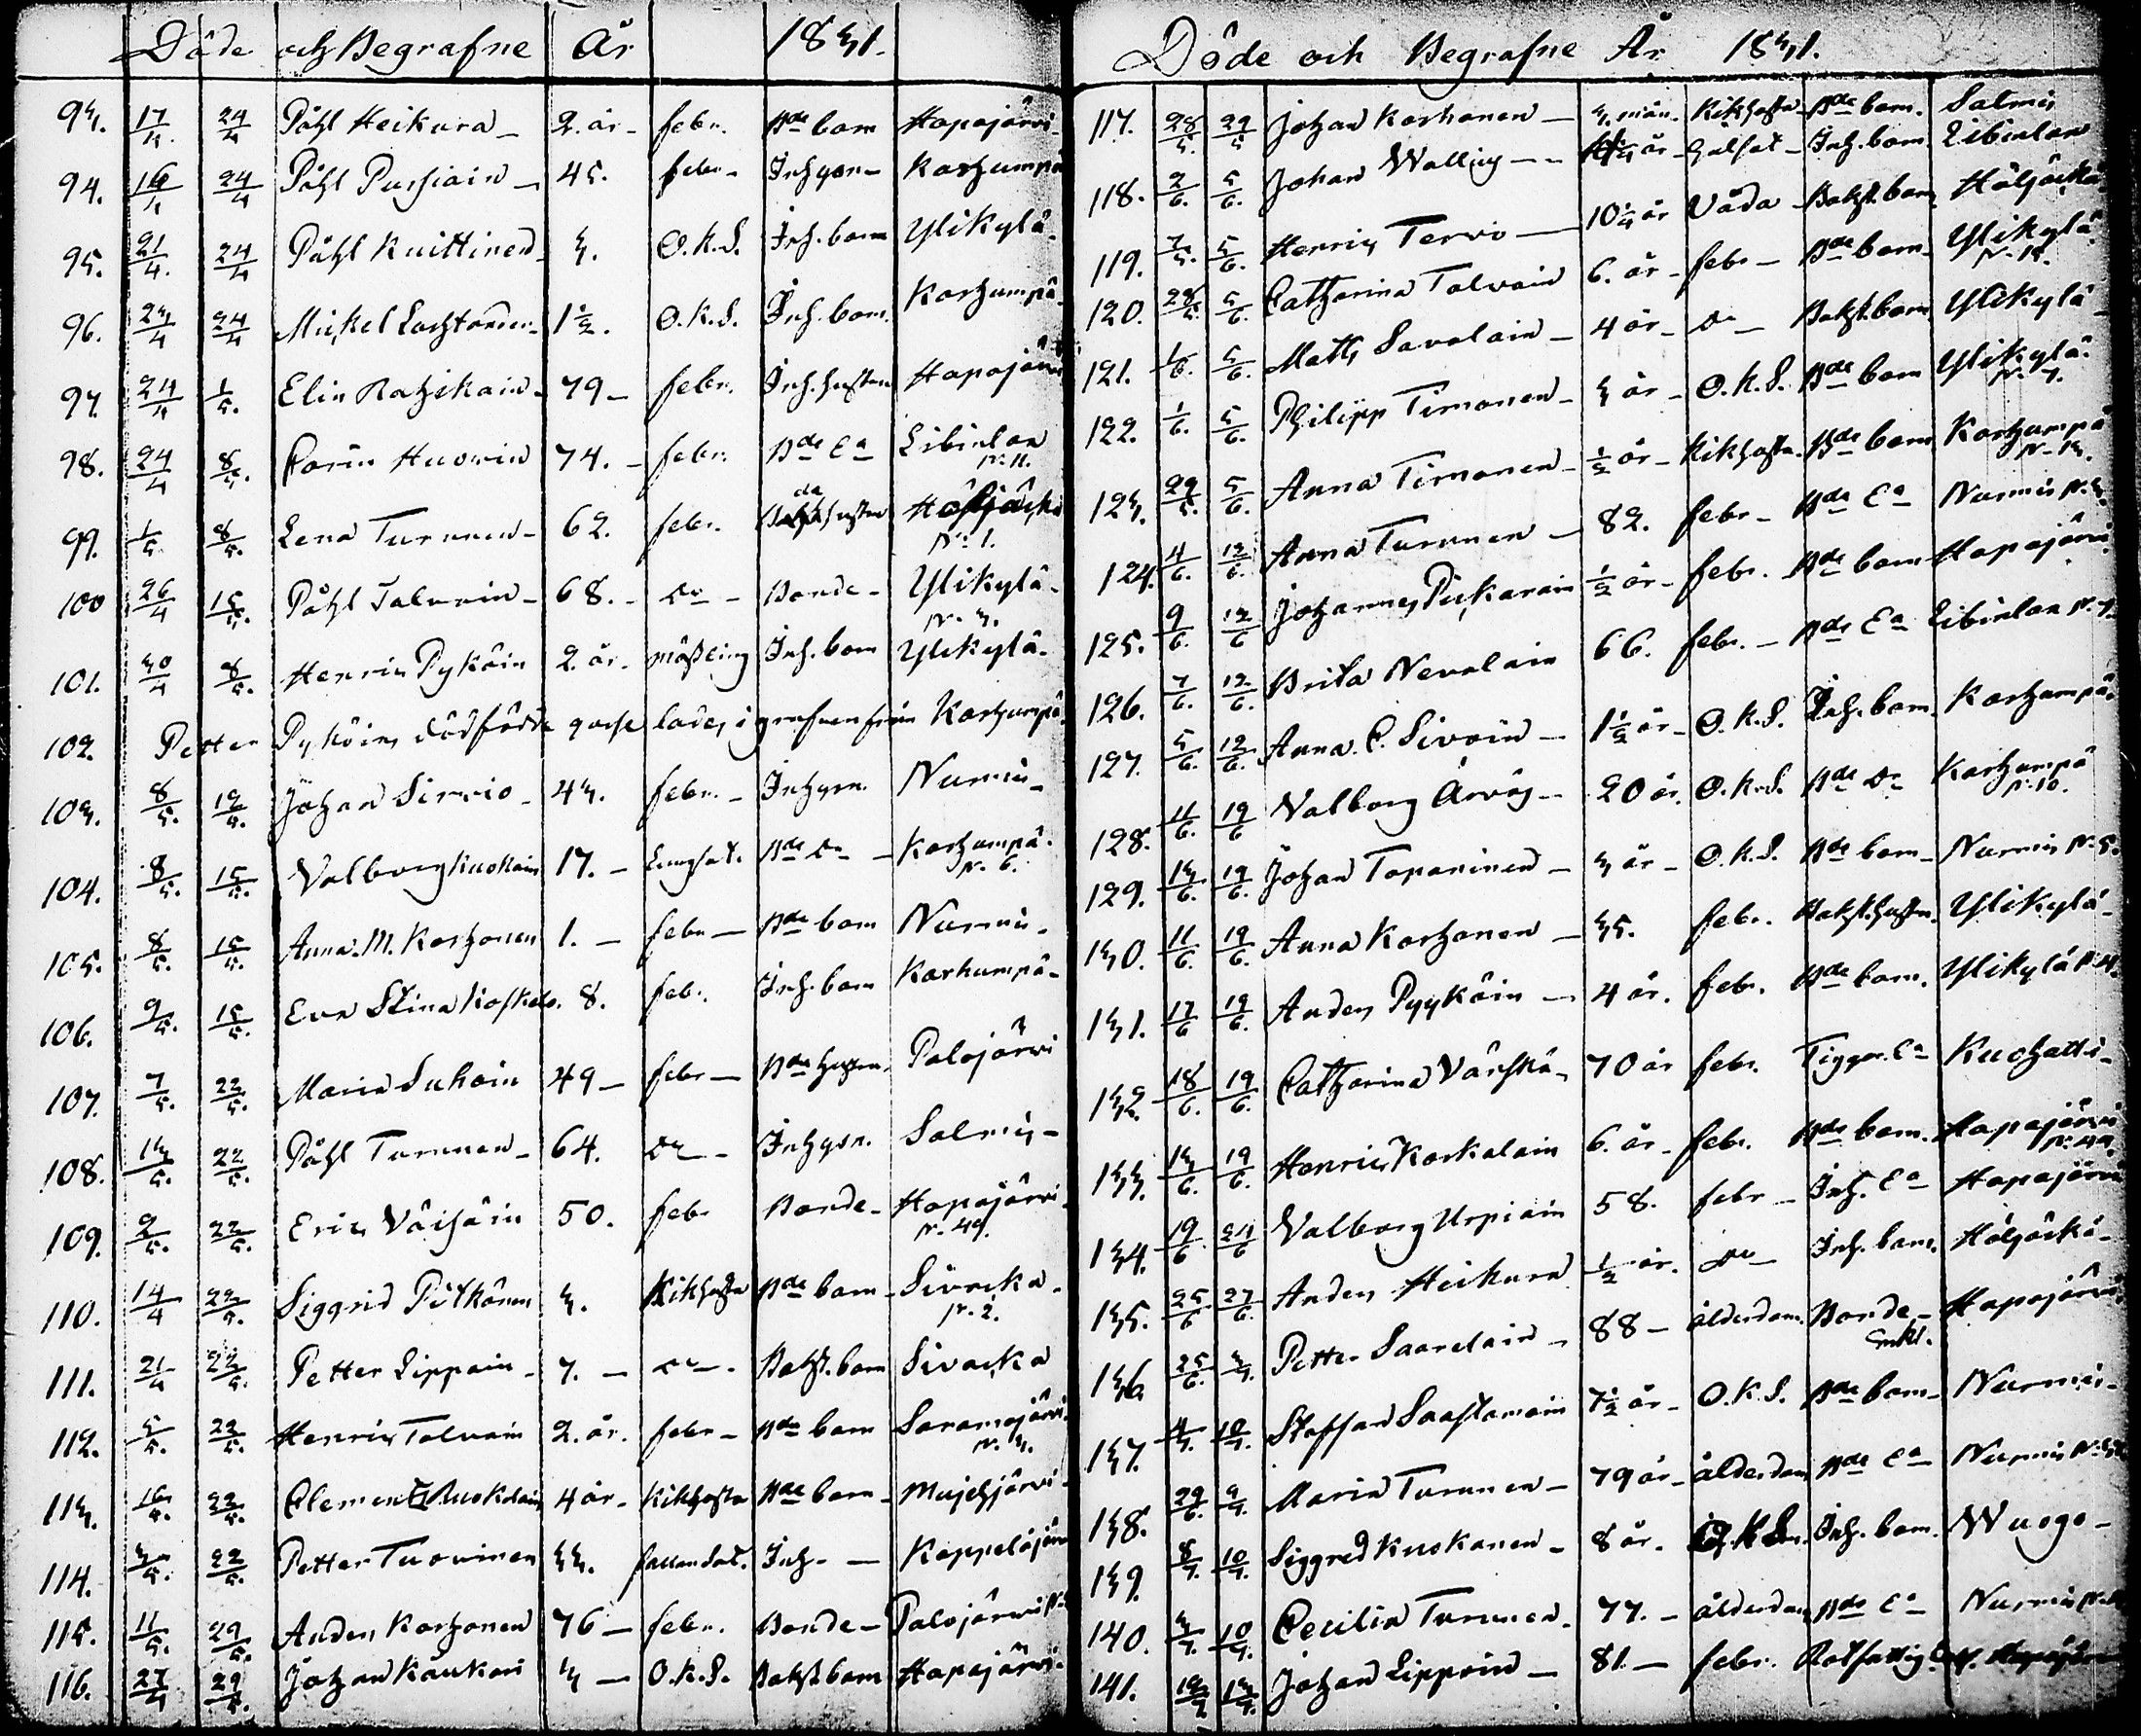 Döde och Begrafne År 1831.
93. 17/4 24/4 Påhl Heikura 2. år febr. Bde barn Hapajärvi
94. 16/4 24/4 Påhl Pursiain 45. febr. Inhysn Karhunpä
95. 21/4. 24/4 Påhl Kuittinen 3. O.K.S. Inh. barn Ylikylä
96. 23/4 24/4 Mickel 1½. O.K.S. Inh. barn. Karhunpä
97. 24/4 1/5. Elin Ratzikain 79 febr. Inh. hustru Hapajärvi
98. 24/4 8/5. Carin Huowin 74. febr. Bde Ea Libinlax N:11.
99. 1/5. 8/5. Lena Turunen 62. febr. hustru Höljäckä N:1.
100 26/4 15/5. Påhl Talvain 68. do Bonde Ylikylä N:3.
101. 30/4 8/5. Henric Pykäin 2. år. mäßling Inh. barn Ylikylä
102. Petter Pyköins dödfödde gosse lades i grafven från Karhunpä
103. 8/5. 12/5. Johan Sirvio 43. febr. Inhysn. Nurmis
104. 8/5. 15/5. Valborg Kuokain 17. Lungsot. Bde dr Karhunpä N:6.
105. 8/5. 15/5. Anna M. Korhonen 1. febr Bde barn Nurmis
106. 9/5. 15/5. Eva Stina Koskelo. 8. febr. Inh. barn Karhunpä
107. 7/5. 22/5. Maria Suhoin 49 febr Bde hustru. Palojärvi
108. 13/5. 22/5. Påhl Turunen 64. do Inhysn. Salmis
109. 9/5. 22/5. Eric Väisäin 50. febr Bonde Hapajärvi N:49.
110. 14/4 22/5. Siggrid Pitkänen 3. Kikhosta Bde barn Sivacka N:2.
111. 21/4 22/5. Petter Lippoin 7. do Backst. barn Sivacka
112. 5/5. 22/5. Henric Talvain 2. år. febr Bde barn Saramojärvi N:3.
113. 16/5. 22/5. Clement Kuokain 4 år Kikhosta Bde barn Mujehjärvi
114. 3/5. 22/5. Petter Tuovinen 33. fallandsot. Inh. Kappelsjärvi
115. 11/5. 29/5. Anders Korhonen 76 febr. Bonde Palojärvi
116. 27/4 29/5. Johan Kaukari 3 O.K.S. Backst barn Hapajärvi
Döde och Begrafne År 1831.
117. 28/5. 29/5 Johan Korhonen 3. mån. Kikhosta Bde barn. Salmis
118. 2/6. 5/6. Johan Walling år halsot Inh. barn Libinlax
119. 7/5. 5/6. Henric Tervo 10¼ år Våda Backst. barn Höljäckä
120. 28/5. 5/6. Catharina Talvain 6. år febr Bde barn Ylikylä N:12.
121. 1/6. 5/6. Matts Savolain 4 år do Backst. barn Ylikylä
122. 1/6. 5/6. Philipp Timonen 3 år O.K.S. Bde barn Ylikylä N:7.
123. 29/5. 5/6. Anna Timonen ½ år Kikhosta Bde barn Karhunpä N:13.
124. 4/6. 12/6. Anna Turunen 82. febr Bde Ea Nurmis N:3.
125. 9/6. 12/6 Johannes Pickarain ½ år febr. Bde barn Hapajärvi
126. 7/6. 12/6. Brita Nevalain 66. febr. Bde Ea Libinlax N:7.
127. 5/6. 12/6. Anna C. Sivoin 1½ år O.K.S. Inh. barn. Karhunpä
128. 11/6. 19/6 Valborg Arväs 20 år. O.K.S. Bde dr Karhunpä N:10.
129. 13/6. 19/6. Johan Toparinen 3 år O.K.S. Bde barn Nurmis N:5.
130. 11/6. 19/6. Anna Korhonen 35. febr. Backst. hustru. Ylikylä
131. 17/6 19/6. Anders Pyykäin 4 år. febr. Bde barn. Ylikylä N:4.
132. 18/6. 19/6. Catharina Värskä 70 år febr. Tiggar Ea Kuohatti
133. 13/6. 19/6. Henric Korkalain 6. år febr. Bde barn. Hapajärvi N:49.
134. 19/6 21/6 Valborg Urpiain 58. febr Inh. Ea Hapajärvi
135. 25/6 27/6. Anders Heikura ½ år. do Inh. barn. Höljäckä
136. 25/6. 3/7. Petter Saarelain 88 ålderdom. Bonde Enkl. Hapajärvi
137. 4/7. 10/7. Staffan Saastamoin 7½ år O.K.S. Bde barn Nurmis
138. 29/6. 9/7. Maria Turunen 79 år ålderdom Bde Ea Nurmis
139. 8/7. 10/7. Siggred Kuokanen 8 år. O.K.S. Inh. barn. Wuogo
140. 3/7. 10/7. Cecilia Turunen 77. ålderdom Bde Ea Nurmis
141. Johan Lippoin 81. febr. Rotfattig